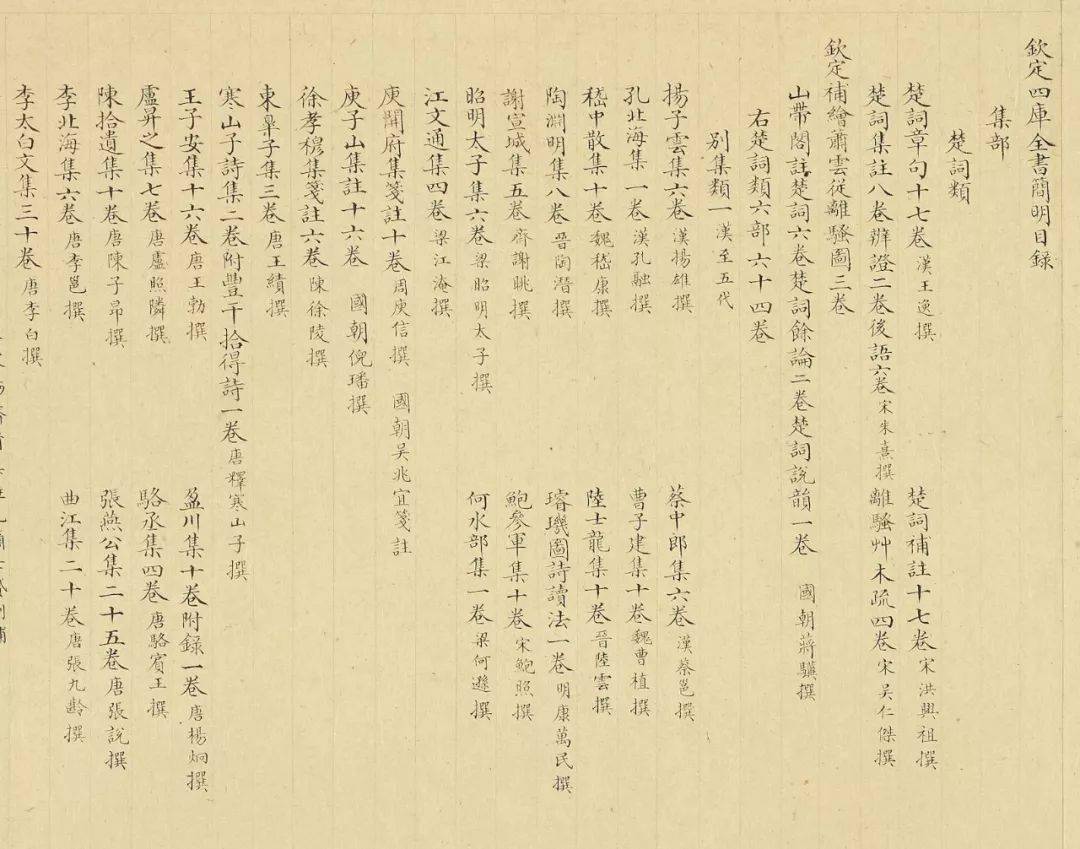 欽定四庫全書簡明目録
集部
楚詞類
楚詞章句十七卷 漢王逸撰 楚詞補註十七卷 宋洪興祖撰
楚詞集註八卷辯證二卷後語六卷 宋朱熹撰 離騷艸木疏四卷 宋吴仁傑撰
欽定補繪蕭雲從離騷圖三卷
山帶閣註楚詞六卷楚詞餘論二卷楚詞說韻一卷 國朝蔣驥撰
右楚詞類六部六十四卷
别集類一 漢至五代
揚子雲集六卷 漢揚雄撰 蔡中郎集六卷 漢蔡邕撰
孔北海集一卷 漢孔融撰 曹子建集十卷 魏曹植撰
嵇中散集十卷 魏嵇康撰 陸士龍集十卷 晉陸雲撰
陶淵明集八卷 晉陶潛撰 璿璣圖詩讀法一卷 明康萬民撰
謝宣城集五卷 齊謝眺撰 鮑參軍集十卷 宋鮑照撰
昭明太子集六卷 梁昭明太子撰 何水部集一卷 梁何遜撰
江文通集四卷 梁江淹撰
庾開府集箋註十卷 周庾信撰 國朝吴兆宜箋註
庾子山集註十六卷 國朝倪璠撰
徐孝穆集箋註六卷 陳徐陵撰
東臯子集三卷 唐王績撰
寒山子詩集二卷附豐干拾得詩一卷 唐釋寒山子撰
王子安集十六卷 唐王勃撰 盈川集十卷附録一卷 唐楊炯撰
盧昇之集七卷 唐盧照隣撰 駱丞集四卷 唐駱賓王撰
陳拾遺集十卷 唐陳子昂撰 張燕公集二十五卷 唐張說撰
李北海集六卷 唐李邕撰 曲江集二十卷 唐張九齡撰
李太白文集三十卷 唐李白撰